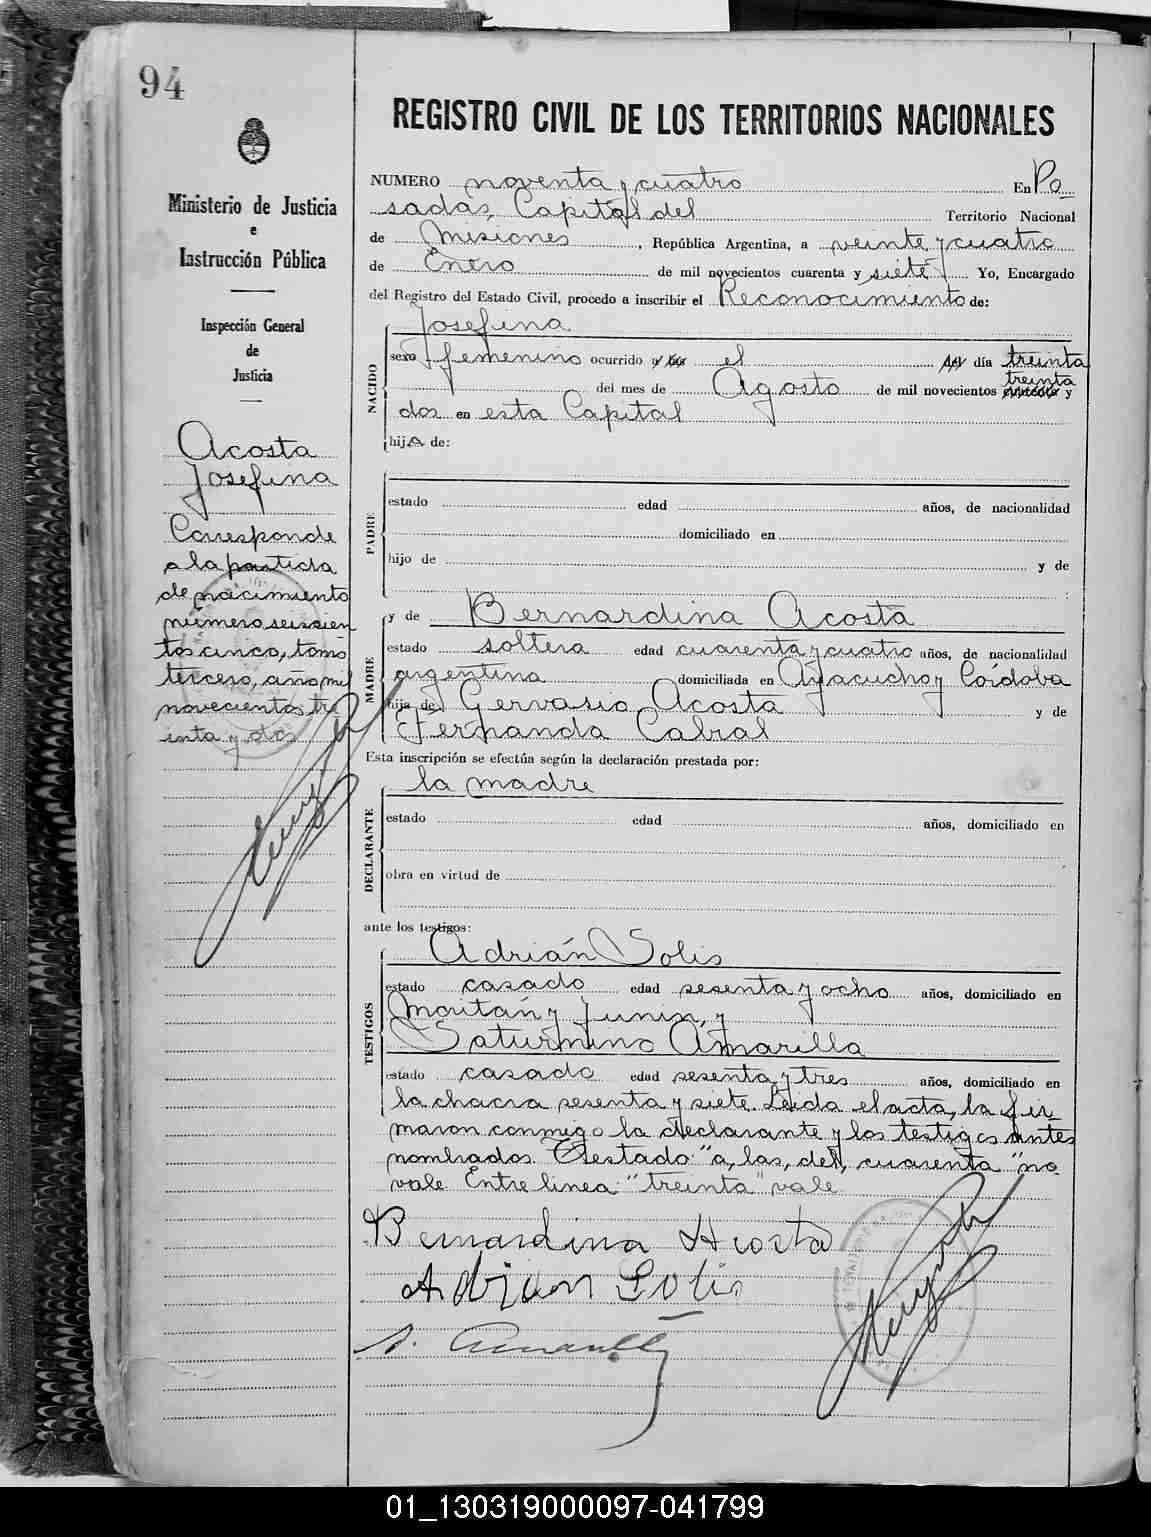 94
REGISTRO CIVIL DE LOS TERRITORIOS NACIONALES
Ministerio de Justicia
e
Instrucción Pública
Inspección General
de
Justicia
Acosta
Josefina
Corresponde
a la partida
de nacimiento
número seiscien
tos cinco, tomo
tercero, año mil
novecientos tre
inta y dos
NUMERO noventa y cuatro En Po
sadas, Capital del Territorio Nacional
de Misiones, República Argentina, a veinte y cuatro
de Enero de mil novecientos cuarenta y siete Yo, Encargado
del Registro del Estado Civil, procedo a inscribir el Reconocimiento de:
NACIDO
Josefina
sexo femenino ocurrido a las el del día treinta
treinta
del mes de Agosto de mil novecientos cuarenta y
dos en esta Capital
hija de:
PADRE
estado edad años, de nacionalidad
domiciliado en
hijo de y de
MADRE
y de Bernardina Acosta
estado soltera edad cuarenta y cuatro años, de nacionalidad
argentina domiciliada en Ayacucho y Córdoba
hija de Gervasio Acosta y de
Fernanda Cabral
Esta inscripción se efectúa según la declaración prestada por:
la madre
DECLARANTE
estado edad años, domiciliado en
obra en virtud de
ante los testigos:
TESTIGOS
Adrián Solis
estado casado edad sesenta y ocho años, domiciliado en
y Junin, y
Saturnino Amarilla
estado casado edad sesenta y tres años, domiciliado en
la chacra sesenta y siete. Leida el acta, la fir-
maron conmigo la declarante y los testigos antes
nombrados. Testado: "a, las, del, cuarenta" no
vale. Entre linea: "treinta" vale
Bernardina Acosta
Adrian Solis
S. Amarilla
01_130319000097-041799